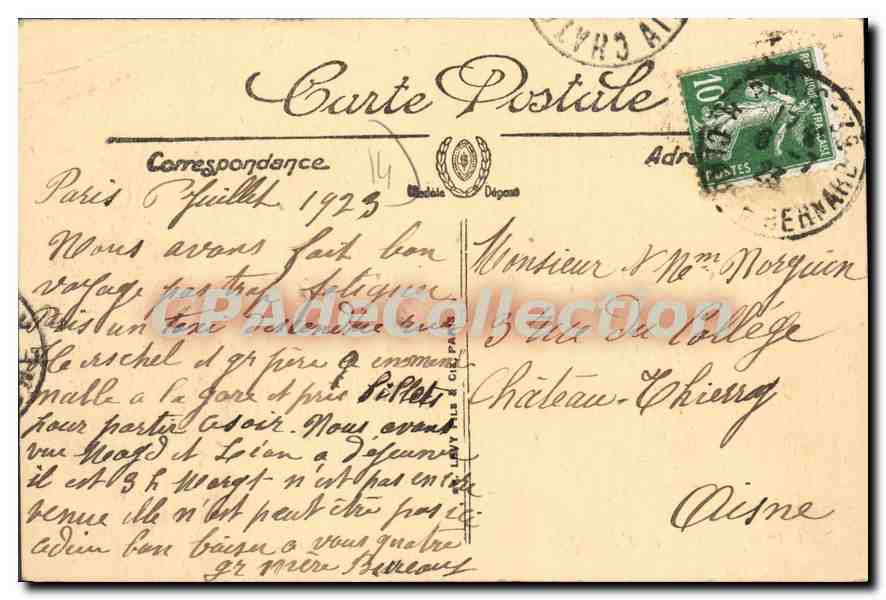 Carte Postale
Correspondance
Adre
14
Modèle Déposé
10
POSTES
BERNARD
CHAT
LEVY FILS & CIE PARIS
CPAdeCollection
Paris Juillet 1923
Nous avons fait bon
voyage pas trop fatiguées
Paris un taxi descendue rue
Herschel et gr père a emmené
malle a la gare et pris billets
pour partir ce soir. Nous avons
vue Magd et Léon a déjeuner
il est 3h Margt n'est pas encore
venue elle n'est peut être pas ici
adieu bon baiser a vous quatre
gr mère Bureau
Monsieur & Mem Norguin
3 rue du Collège
Château-Thierry
Aisne